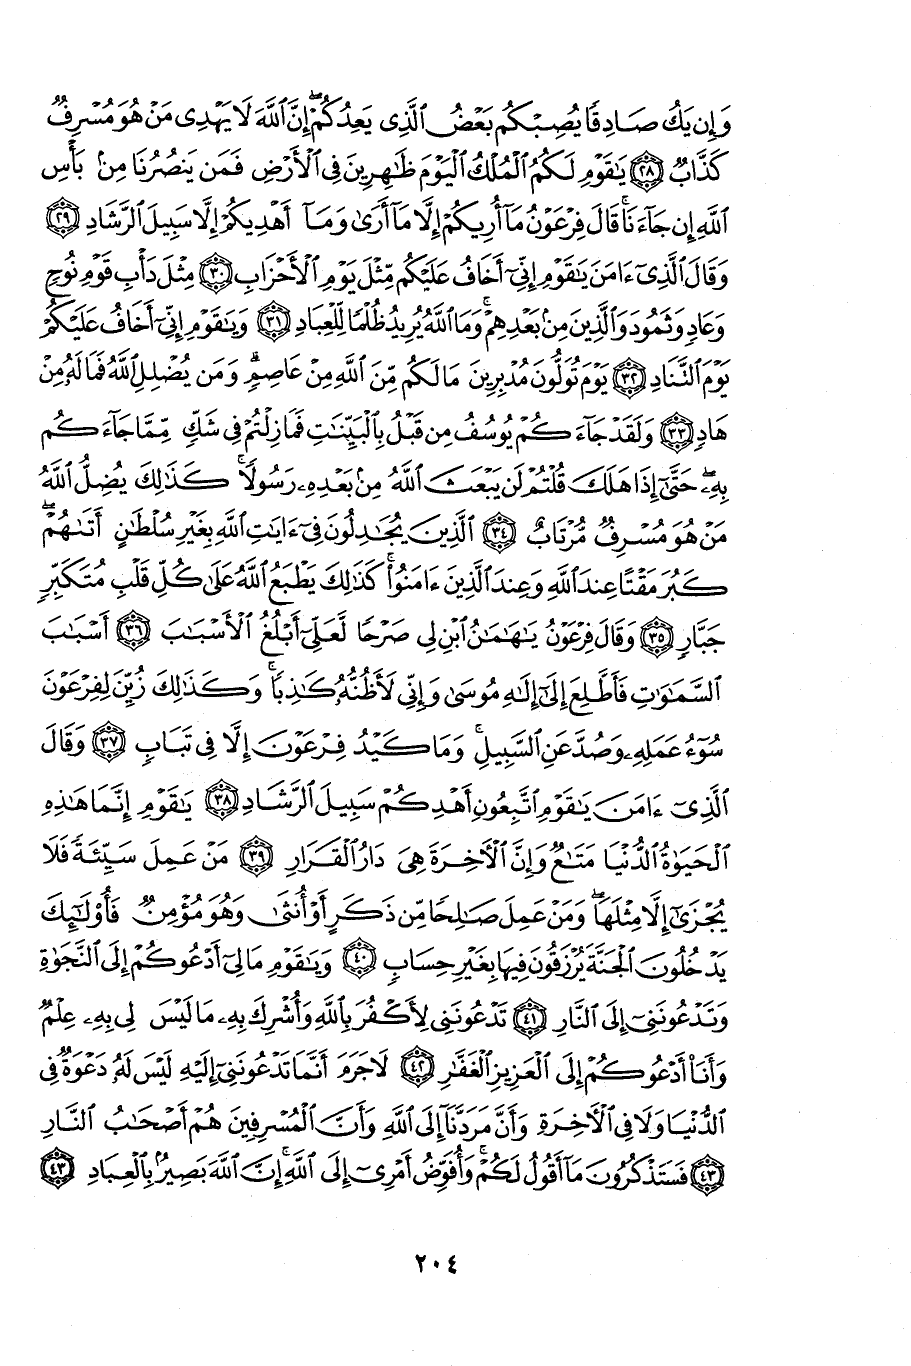 وَإِن يَكُ صَادِقًا يُصِبْكُم بَعْضُ ٱلَّذِى يَعِدُكُمْ ۖ إِنَّ ٱللَّهَ لَا يَهْدِى مَنْ هُوَ مُسْرِفٌ
كَذَّابٌ ﴿٢٨﴾ يَٰقَوْمِ لَكُمُ ٱلْمُلْكُ ٱلْيَوْمَ ظَٰهِرِينَ فِى ٱلْأَرْضِ فَمَن يَنصُرُنَا مِنۢ بَأْسِ
ٱللَّهِ إِن جَآءَنَا ۚ قَالَ فِرْعَوْنُ مَآ أُرِيكُمْ إِلَّا مَآ أَرَىٰ وَمَآ أَهْدِيكُمْ إِلَّا سَبِيلَ ٱلرَّشَادِ ﴿٢٩﴾
وَقَالَ ٱلَّذِىٓ ءَامَنَ يَٰقَوْمِ إِنِّىٓ أَخَافُ عَلَيْكُم مِّثْلَ يَوْمِ ٱلْأَحْزَابِ ﴿٣٠﴾ مِثْلَ دَأْبِ قَوْمِ نُوحٍ
وَعَادٍ وَثَمُودَ وَٱلَّذِينَ مِنۢ بَعْدِهِمْ ۚ وَمَا ٱللَّهُ يُرِيدُ ظُلْمًا لِّلْعِبَادِ ﴿٣١﴾ وَيَٰقَوْمِ إِنِّىٓ أَخَافُ عَلَيْكُمْ
يَوْمَ ٱلتَّنَادِ ﴿٣٢﴾ يَوْمَ تُوَلُّونَ مُدْبِرِينَ مَا لَكُم مِّنَ ٱللَّهِ مِنْ عَاصِمٍ ۗ وَمَن يُضْلِلِ ٱللَّهُ فَمَا لَهُۥ مِنْ
هَادٍ ﴿٣٣﴾ وَلَقَدْ جَآءَكُمْ يُوسُفُ مِن قَبْلُ بِٱلْبَيِّنَٰتِ فَمَا زِلْتُمْ فِى شَكٍّ مِّمَّا جَآءَكُم
بِهِۦ ۖ حَتَّىٰٓ إِذَا هَلَكَ قُلْتُمْ لَن يَبْعَثَ ٱللَّهُ مِنۢ بَعْدِهِۦ رَسُولًا ۚ كَذَٰلِكَ يُضِلُّ ٱللَّهُ
مَنْ هُوَ مُسْرِفٌ مُّرْتَابٌ ﴿٣٤﴾ ٱلَّذِينَ يُجَٰدِلُونَ فِىٓ ءَايَٰتِ ٱللَّهِ بِغَيْرِ سُلْطَٰنٍ أَتَىٰهُمْ ۖ
كَبُرَ مَقْتًا عِندَ ٱللَّهِ وَعِندَ ٱلَّذِينَ ءَامَنُوا۟ ۚ كَذَٰلِكَ يَطْبَعُ ٱللَّهُ عَلَىٰ كُلِّ قَلْبِ مُتَكَبِّرٍ
جَبَّارٍ ﴿٣٥﴾ وَقَالَ فِرْعَوْنُ يَٰهَٰمَٰنُ ٱبْنِ لِى صَرْحًا لَّعَلِّىٓ أَبْلُغُ ٱلْأَسْبَٰبَ ﴿٣٦﴾ أَسْبَٰبَ
ٱلسَّمَٰوَٰتِ فَأَطَّلِعَ إِلَىٰٓ إِلَٰهِ مُوسَىٰ وَإِنِّى لَأَظُنُّهُۥ كَٰذِبًا ۚ وَكَذَٰلِكَ زُيِّنَ لِفِرْعَوْنَ
سُوٓءُ عَمَلِهِۦ وَصُدَّ عَنِ ٱلسَّبِيلِ ۚ وَمَا كَيْدُ فِرْعَوْنَ إِلَّا فِى تَبَابٍ ﴿٣٧﴾ وَقَالَ
ٱلَّذِىٓ ءَامَنَ يَٰقَوْمِ ٱتَّبِعُونِ أَهْدِكُمْ سَبِيلَ ٱلرَّشَادِ ﴿٣٨﴾ يَٰقَوْمِ إِنَّمَا هَٰذِهِ
ٱلْحَيَوٰةُ ٱلدُّنْيَا مَتَٰعٌ وَإِنَّ ٱلْأَخِرَةَ هِىَ دَارُ ٱلْقَرَارِ ﴿٣٩﴾ مَنْ عَمِلَ سَيِّئَةً فَلَا
يُجْزَىٰٓ إِلَّا مِثْلَهَا ۖ وَمَنْ عَمِلَ صَٰلِحًا مِّن ذَكَرٍ أَوْ أُنثَىٰ وَهُوَ مُؤْمِنٌ فَأُو۟لَٰٓئِكَ
يَدْخُلُونَ ٱلْجَنَّةَ يُرْزَقُونَ فِيهَا بِغَيْرِ حِسَابٍ ﴿٤٠﴾ وَيَٰقَوْمِ مَا لِىٓ أَدْعُوكُمْ إِلَى ٱلنَّجَوٰةِ
وَتَدْعُونَنِىٓ إِلَى ٱلنَّارِ ﴿٤١﴾ تَدْعُونَنِى لِأَكْفُرَ بِٱللَّهِ وَأُشْرِكَ بِهِۦ مَا لَيْسَ لِى بِهِۦ عِلْمٌ
وَأَنَا۠ أَدْعُوكُمْ إِلَى ٱلْعَزِيزِ ٱلْغَفَّٰرِ ﴿٤٢﴾ لَا جَرَمَ أَنَّمَا تَدْعُونَنِىٓ إِلَيْهِ لَيْسَ لَهُۥ دَعْوَةٌ فِى
ٱلدُّنْيَا وَلَا فِى ٱلْأَخِرَةِ وَأَنَّ مَرَدَّنَآ إِلَى ٱللَّهِ وَأَنَّ ٱلْمُسْرِفِينَ هُمْ أَصْحَٰبُ ٱلنَّارِ
﴿٤٣﴾ فَسَتَذْكُرُونَ مَآ أَقُولُ لَكُمْ ۚ وَأُفَوِّضُ أَمْرِىٓ إِلَى ٱللَّهِ ۚ إِنَّ ٱللَّهَ بَصِيرٌۢ بِٱلْعِبَادِ ﴿٤٣﴾
٢٠٤